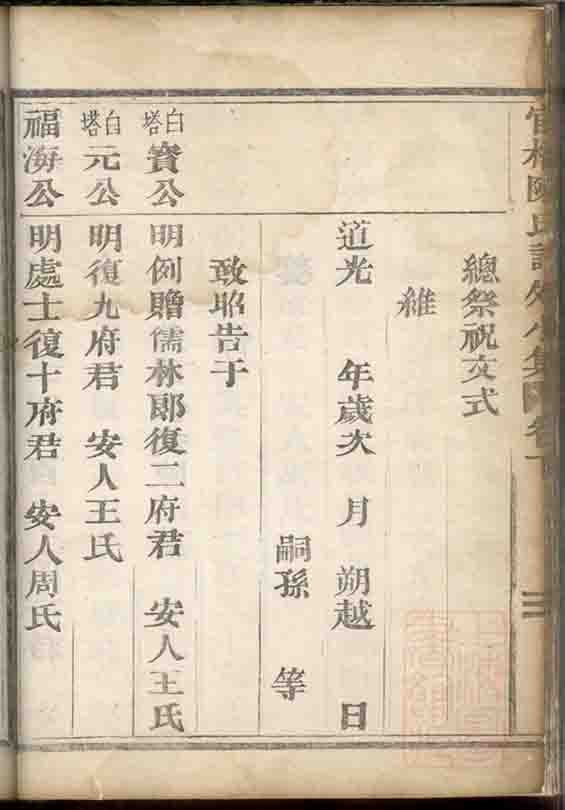 陳氏
總祭祝文式
維
道光 年歲次 月 朔越 日
嗣孫 等
敢昭告于
白塔 寳公 明例贈儒林郎復二府君 安人王氏
白塔 元公 明復九府君 安人王氏
福海公 明處士復十府君 安人周氏